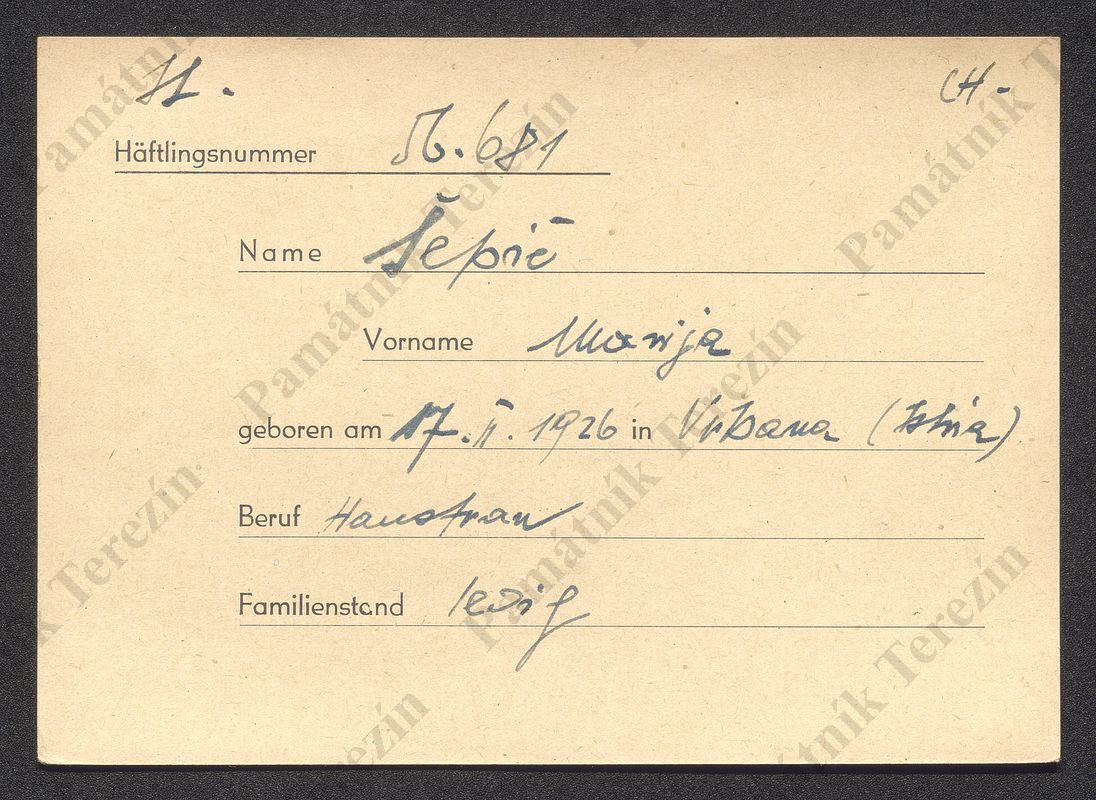 CH-
Häftlingsnummer 681
Name Šepič
Vorname Marija
geboren am 17. II. 1926 in Vrbana (Istria)
Beruf Hausfrau
Familienstand ledig
Památník Terezín